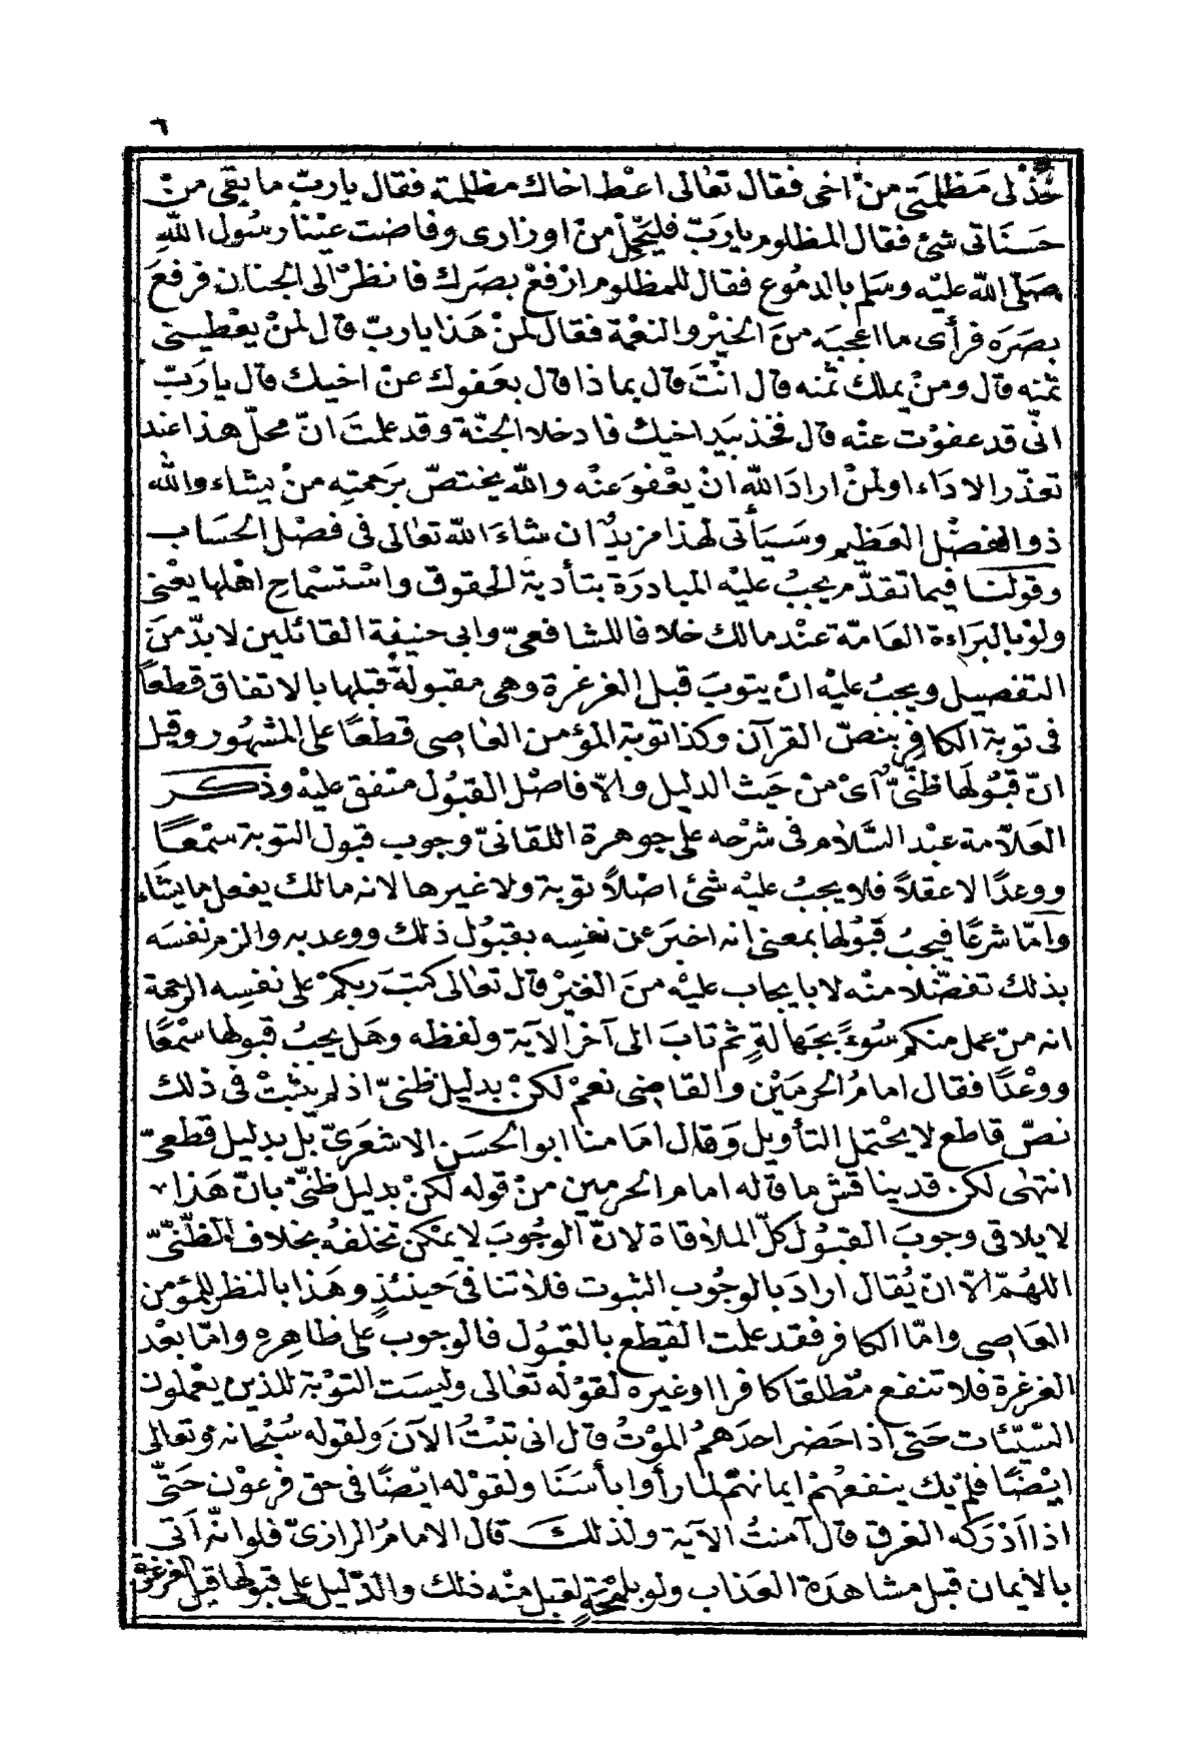 ٦
خُذْ لى مَظلمَتى منْ اخى فقال تعالى اعْط اخاك مظلمته فقال ياربّ ما بقى منْ
حَسنَاتى شئ فقال المظلوم يارَبّ فليَحْملْ منْ اوزارى وفاضت عيْنا رسُول اللّهِ
صَلّى اللّه عليْه وسلم بالدمُوع فقال للمظلوم ارْفعْ بصَرك فانظرْ الى الجنان فرفعَ
بصَرَه فرأى ما اعجبَه منَ الخيْر والنعْمة فقال لمنْ هَذا ياربّ قال لمنْ يعْطينى
ثمنه قال ومنْ يملك ثمنه قال انْتَ قال بماذا قال بعَفوك عنْ اخيك قال يارَبّ
انّى قد عفوْت عنْه قال فخذ بيَد اخيك فادخلا الجنّة وقد علمتَ انّ محلّ هذا عند
تعذّر الادَاء اولمنْ ارادَ اللّه انْ يعْفوَ عنْه واللّه يختصّ برَحمتِه منْ يشاء واللّه
ذو الفضْل العَظيم وسَيَأتى لهذا مزيدٌ ان شاءَ اللّه تعالى فى فصْل الحسَاب
وقولنَا فيما تقدّم يجبُ عليْه المبادرَة بتأدية الحقوق واسْتسْماحِ اهْلها يعْنى
ولوْ بالبرَاءة العَامّة عنْد مالك خلافا للشافعىّ وابى حنيفة القائلين لا بدّ منَ
التفصيل ويجبُ عليْه انْ يتوبَ قبل الغرغرة وهى مقبولةٌ قبلها بالاتفاق قطعًا
فى توبة الكافِر بنصّ القرآن وكذا توبة المؤمن العاصى قطعًا على المشهُور وقيل
انّ قبُولها ظنّىٌّ اَىْ منْ حَيث الدليل والاّ فاصْل القبُول متفق عليْه وذكر
العَلاّمة عبْد السَّلام فى شرْحه على جوهرة اللقانىّ وجوب قبول التوبة سمْعًا
ووعدًا لا عقلاً فلا يجبُ عليْه شئ اصْلاً توبة ولا غيرها لانه مالك يفعل ما يشاء
وامّا شرعًا فيجبُ قبُولها بمعنى انه اخبرَ عن نفسِه بقبُول ذلك ووعد به والزم نفسَه
بذلك تفضّلا منْه لا بايجاب عليْه منَ الغيْر قال تعالى كتبَ ربكمْ على نفسِه الرحمة
انه منْ عمل منكم سُوءً بجَهالةٍ ثم تابَ الى آخر الآية ولفظه وهَل يجبُ قبولها سمْعًا
ووعْدًا فقال امامُ الحرمَيْن والقاضى نعمْ لكنْ بدليل ظنىّ اذ لم يثبتْ فى ذلك
نصّ قاطع لا يحْتمل التأويل وَقال امَامنا ابو الحسَن الاشعَرىّ بل بدليل قطعىّ
انتهى لكن قد يناقش ما قاله امام الحرمين منْ قوله لكنْ بدليل ظنّىّ بانّ هَذا
لا يلاقى وجوبَ القبُول كلّ الملاقاة لانّ الوجُوبَ لا يمْكن تخلفهُ بخلاف الظنّىّ
اللهُمّ الاّ انْ يُقال ارادَ بالوجُوب الثبوت فلا تنافىَ حينئذٍ وهَذا بالنظر للمؤمن
العَاصى وامّا الكافر فقد علمت القطع بالقبُول فالوجوب على ظاهِره وامّا بعْد
الغرغرة فلا تنفع مُطلقا كافرا اوغيره لقوْله تعَالى وليسَت التوْبة للذين يعْملون
السّيّئات حَتى اذا حَضر احدَهمُ الموْتُ قال انى تبْتُ الآنَ ولقوله سُبْحانه وتعالى
ايْضًا فلم يَك ينفعُهمْ ايمانهُم لما رأوا بأسَنَا ولقوْله ايْضًا فى حق فرعوْن حَتّى
اذا اَدْرَكه الغرق قال آمنتُ الآية ولذلك قال الامامُ الرازىّ فلو انّه اَتى
بالايمان قبل مشاهدَة العَذاب ولو بلمْحَةٍ لقبل منْه ذلك والدّليل على قبولها قبل الغرغرة